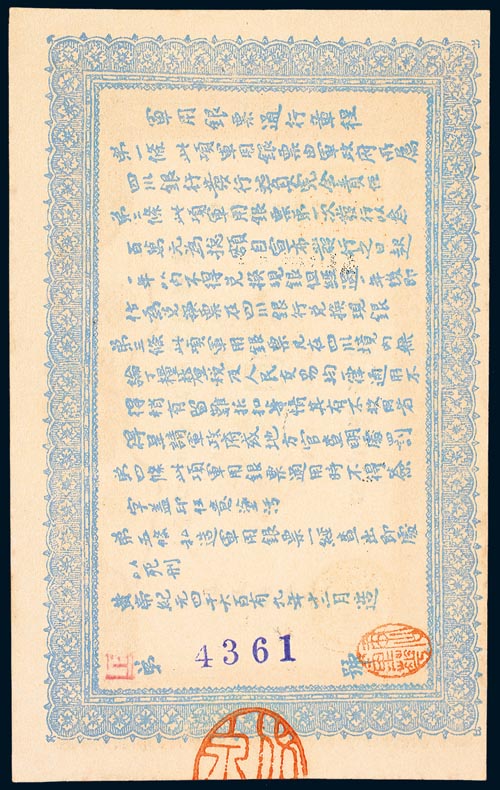 軍用銀票通行章程
第一條 此項軍用銀票由軍政府所屬
四川銀行發行負完全責任
第二條 此項軍用銀票第一次發行以叁
百萬元為總額自宣布發行之日起
一年以內不得兌換現銀但經過一年後即
作為兌換票在四川銀行兌換現銀
第三條 此項軍用銀票凡在四川境內無
論丁糧釐稅及人民交易均應通用不
得稍有留難折扣等情其有不收用者
得呈請軍政府或地方官查明處罰
第四條 此項軍用銀票通用時不得簽
字蓋印任意塗污
第五條 私造軍用銀票一經查出即處
以死刑
黃帝紀元四千六百有九年十二月造
第 4361 號